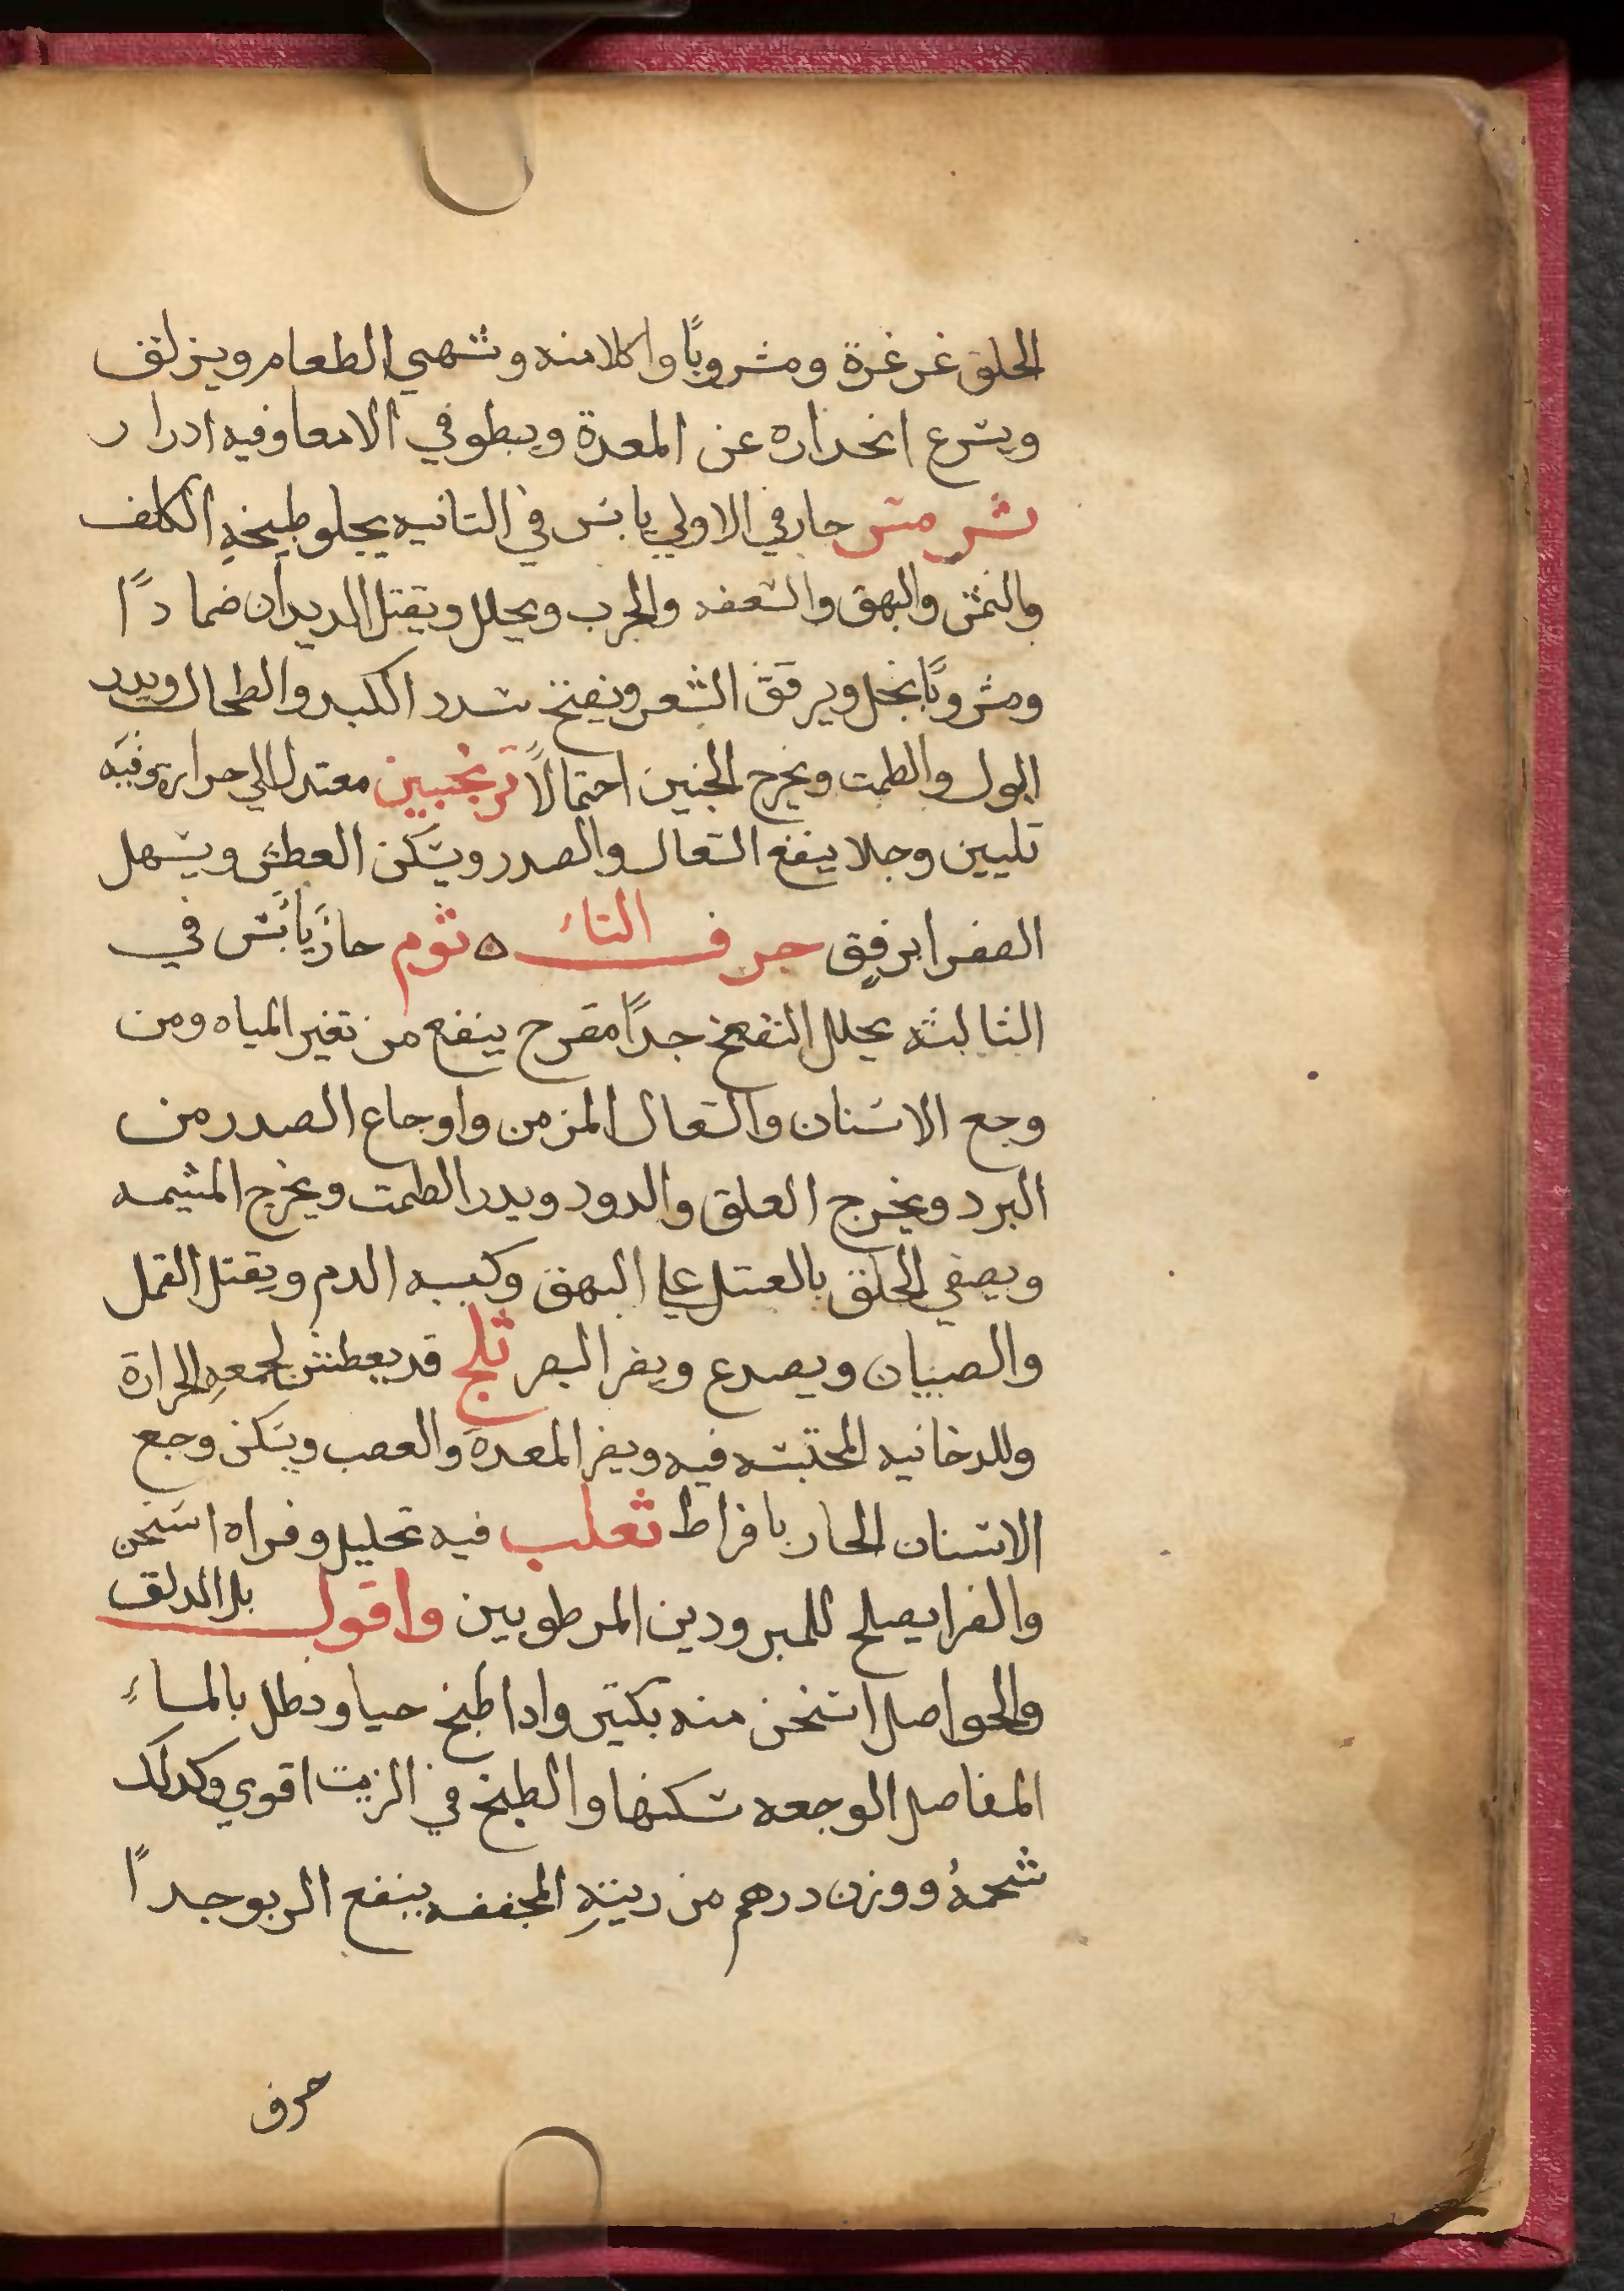 الحلق غرغرة ومشروبًا واكلا منه وتشهي الطعام ويزلق
ويسرع انحداره عن المعدة ويبطو في الامعا وفيه ادرار
ترمس حار في الاولي يابس في الثانيه يجلو طبيخه الكلف
والنمش والبهق والسعفه والجرب ويحلل ويقتل الديدان ضمادًا
ومشروبًا بخل ويرقق الشعر ويفتح سدد الكبد والطحال ويدر
البول والطمت ويخرج الجنين احتمالًا ترنجبين معتدل الي حرارة وفيه
تليين وجلا ينفع السعال والصدر ويسكن العطش ويسهل
الصفرا برفق حرف الثاء ثوم حار يابس في
الثالثه يحلل النفخ جدًا مقرح ينفع من تغير المياه ومن
وجع الاسنان والسعال المزمن واوجاع الصدر من
البرد ويخرج العلق والدود ويدر الطمت ويخرج المشيمه
ويصفي الحلق بالعسل علي البهق وكهبه الدم ويقتل القمل
والصيبان ويصدع ويضر البصر ثلج قد يعطش لجمعه الحرارة
وللدخانيه المحتبسه فيه ويضر المعدة والعصب ويسكن وجع
الاسنان الحار بافراط ثعلب فيه تحليل وفراه اسخن
والفرا يصلح للمبرودين المرطوبين واقول بل الدلق
والحواصل اسخن منه بكتير وادا طبخ حيا ونطل بالماء
المفاصل الوجعه سكنها والطبخ في الزيت اقوي وكدلك
شحمهُ ووزن درهم من ريته المجففه ينفع الربو جدًا
حرف